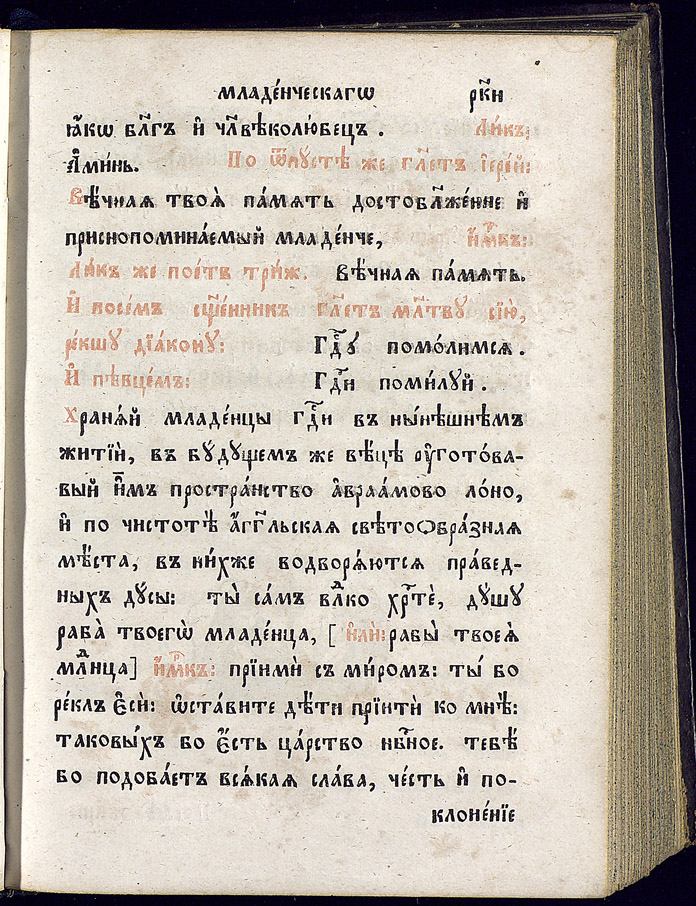 младе́нческагѡ рк҃и
ꙗ҆́кѡ бл҃гъ и҆ чл҃вѣколю́бецъ. Ли́къ:
А҆ми́нь. По ѿпу́стѣ же гл҃етъ і҆ере́й:
Вѣ́чная твоѧ̀ па́мять достобл҃же́нне и҆
приснопомина́емый младе́нче, и҆м҃къ:
ли́къ же пое́тъ три́ж. Вѣ́чная па́мять.
И҆ посе́мъ сщ҃е́нникъ гл҃етъ мл҃тву сїю̀,
ре́кшу дїа́кону: Гдⷭ҇у помо́лимсѧ.
И҆ пѣвце́мъ: Гдⷭ҇и поми́луй.
Хранѧ́й младе́нцы гдⷭ҇и въ ны́нѣшнѣмъ
житїѝ, въ бꙋ́дꙋщемъ же вѣ́цѣ ᲂу҆гото́ва-
вый и҆̀мъ простра́нство а҆враа́мово ло́но,
и҆ по чистотѣ̀ а҆́гг҃льская свѣтоѻбра́зная
мѣ́ста, въ ни́хже водворѧ́ются пра́вед-
ныхъ дꙋ́сы: ты̀ са́мъ влⷣко хрⷭ҇тѐ, дꙋ́шꙋ
раба̀ твоегѡ̀ младе́нца, [ и҆лѝ: рабы̀ твоеѧ̀
млⷣнца] и҆м҃къ: прїимѝ съ ми́ромъ: ты́ бо
ре́клъ є҆сѝ: ѡ҆ста́вите дѣ́ти прїитѝ ко мнѣ̀:
таковы́хъ бо є҆́сть ца́рство нб҃ное. тебѣ́
бо подоба́етъ всѧ́кая сла́ва, че́сть и҆ по-
клоне́нїе